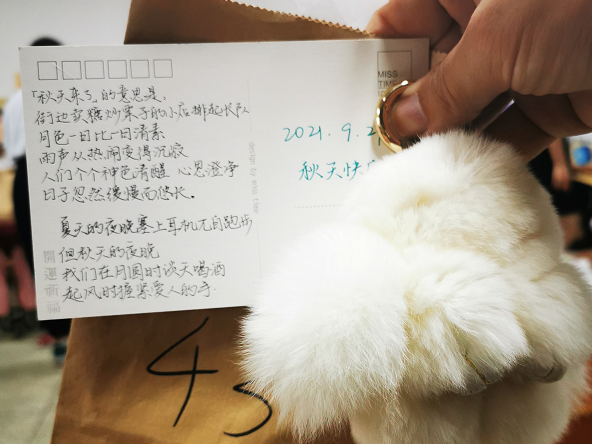 「秋天来了」的意思是,
街边卖糖炒栗子的小店排起长队
月色一日比一日清素
雨声从热闹变得沉寂
人们个个神色清醒 心思澄净
日子忽然缓慢而悠长。
夏天的夜晚塞上耳机兀自跑步
但秋天的夜晚
我们在月圆时谈天喝酒
起风时握紧爱人的手
MISS
TIME
2021.9.2
秋天快
45